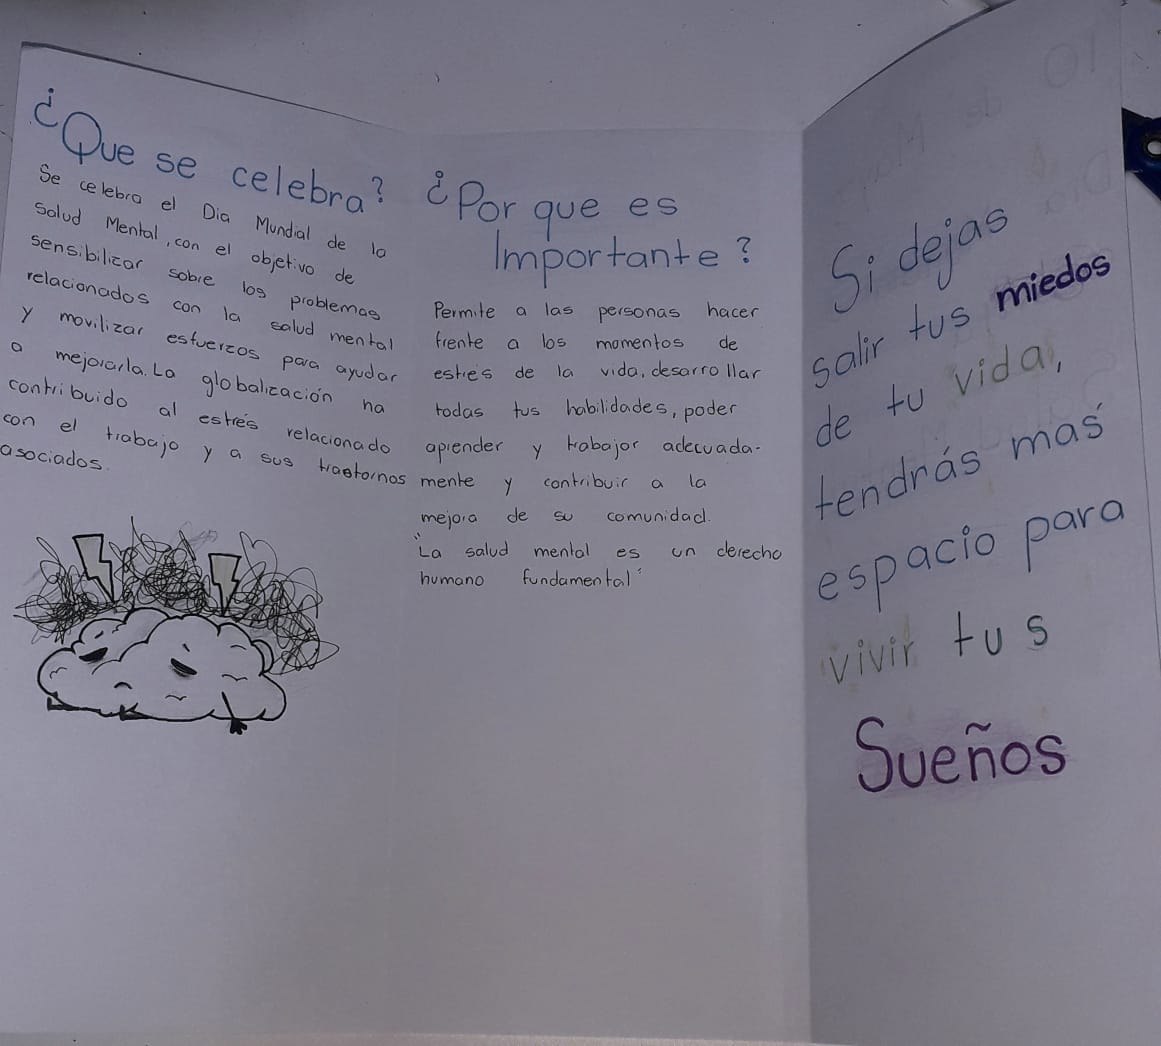 ¿Que se celebra?
Se celebra el Dia Mundial de la
Salud Mental, con el objetivo de
sensibilizar sobre los problemas
relacionados con la salud mental
y movilizar esfuerzos para ayudar
a mejorarla. La globalización ha
contribuido al estrés relacionado
con el trabajo y a sus trastornos
asociados.
¿Por que es
Importante?
Permite a las personas hacer
frente a los momentos de
estrés de la vida, desarrollar
todas tus habilidades, poder
aprender y trabajar adecuada-
mente y contribuir a la
mejora de su comunidad.
"La salud mental es un derecho
humano fundamental"
Si dejas
salir tus miedos
de tu vida,
tendrás mas
espacio para
vivir tus
Sueños